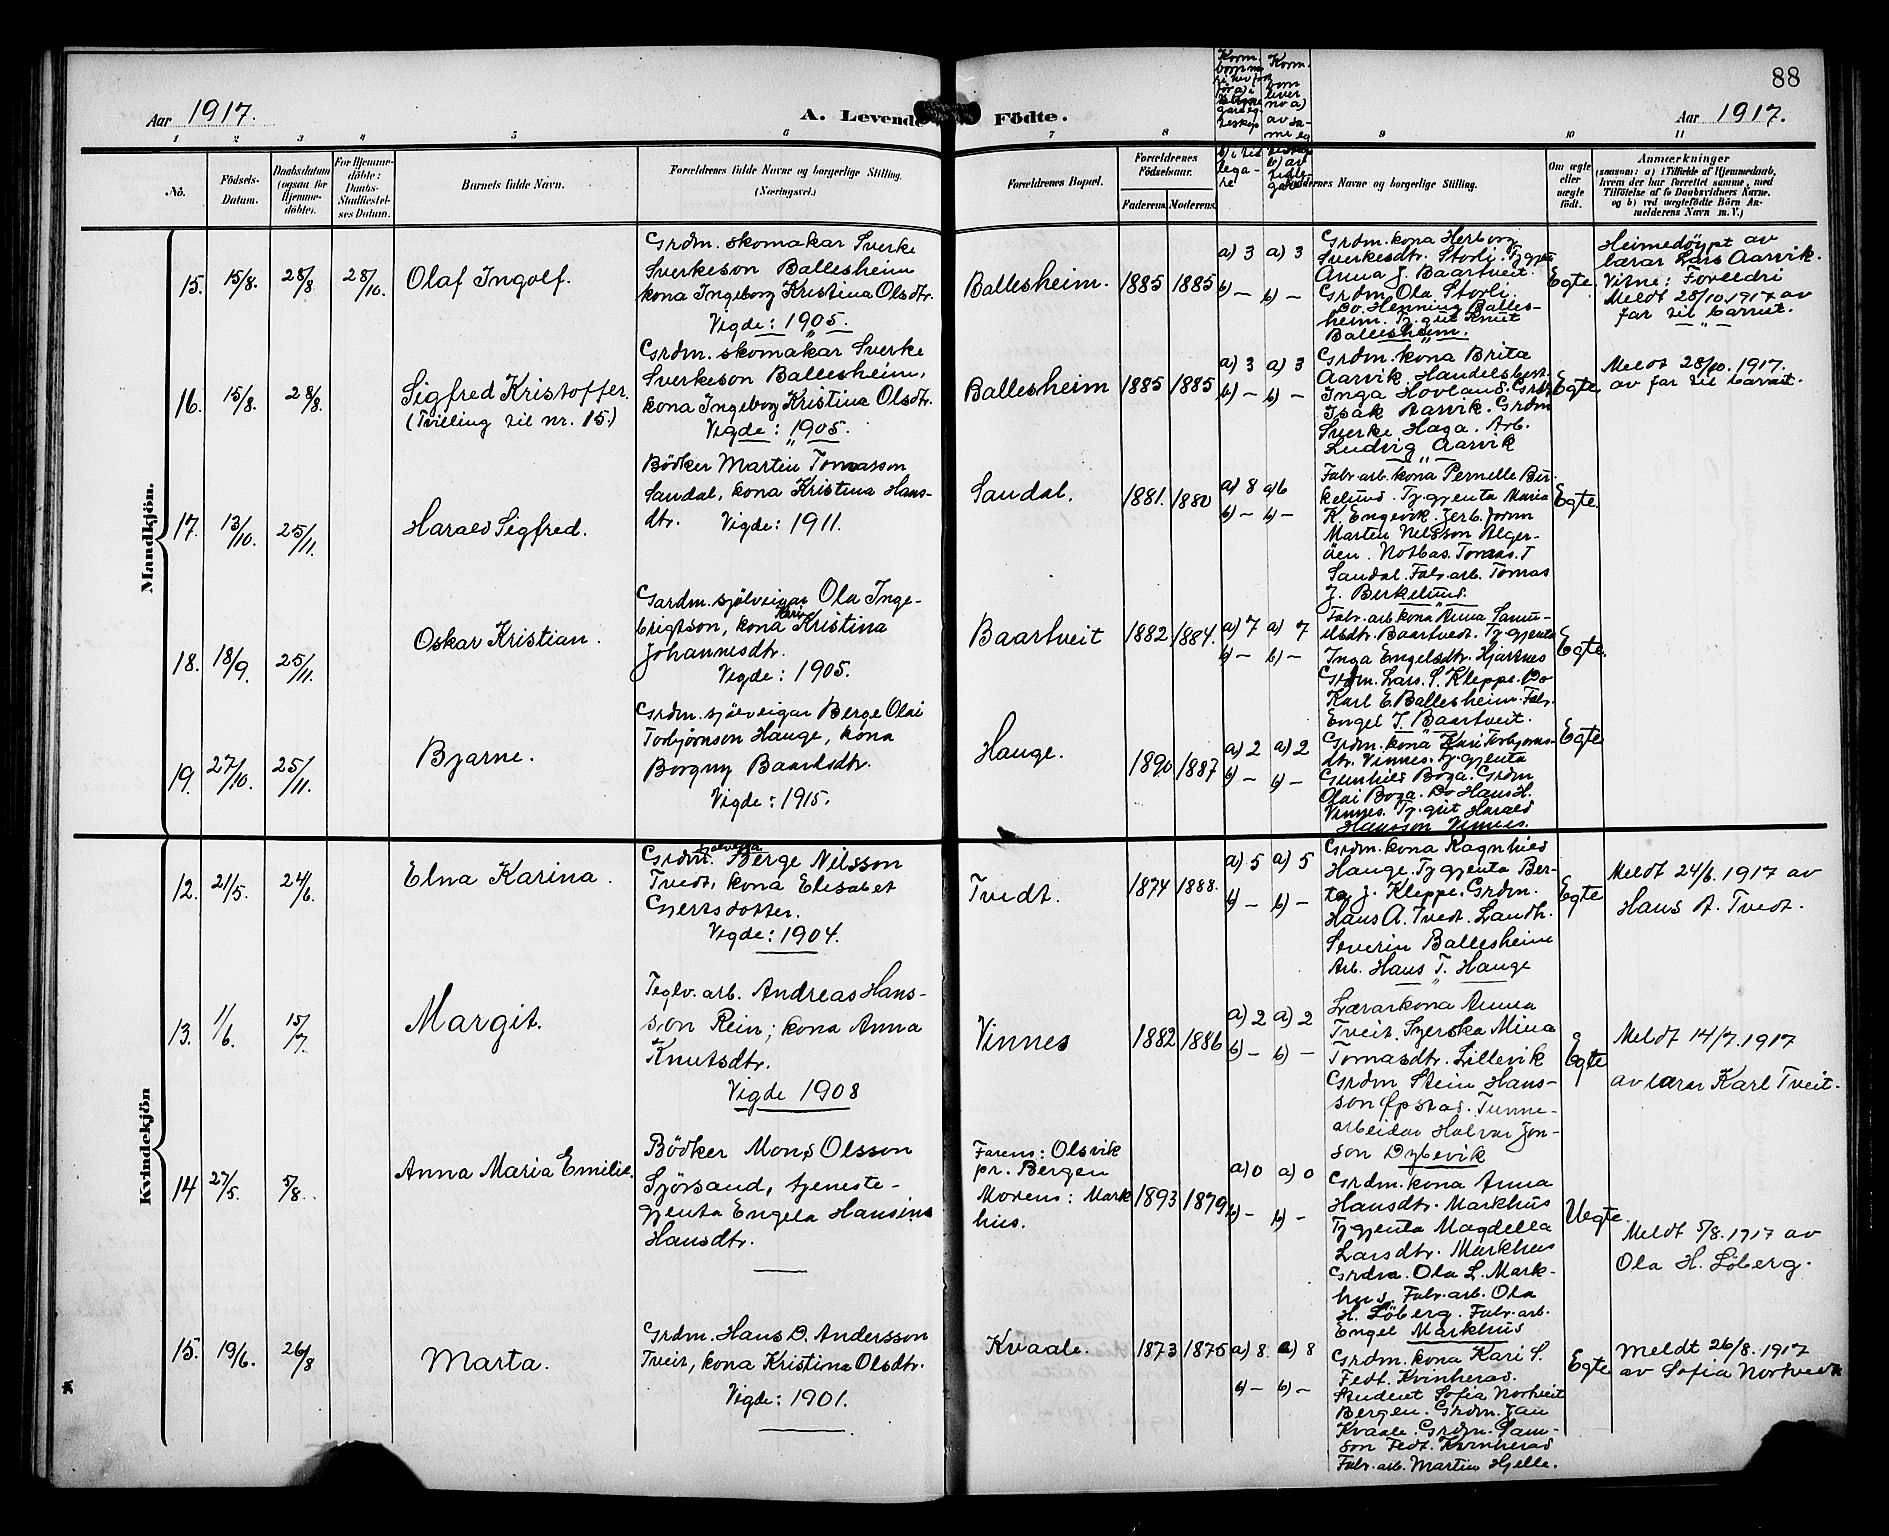 88
Aar 1917.
A. Levende Födte.
Aar 1917.
1 2 3 4 5 6 7 8 9 10 11
No.
Födsels-
Datum.
Daabsdatum
(ogsaa for
Hjemme-
döbte).
For Hjemme-
döbte:
Daabs-
Stadfæstel-
ses Datum.
Barnets fulde Navn.
Forældrenes fulde Navne og borgerlige Stilling.
(Næringsvei.)
Forældrenes Bopæl.
Forældrenes
Födselsaar.
Faderens. Moderens.
Faddernes Navne og borgerlige Stilling.
Om ægte
eller
uægte
födt.
Anmærkninger
(saasom: a) i Tilfælde af Hjemmedaab,
hvem der har forrettet samme, med
Tilföielse af to Daabsvidners Navne,
og b) ved uægtefödte Börn An-
melderens Navn m. V.)
Mandkjön.
15. 15/8. 28/8 28/10. Olaf Ingolf.
Grdm. skomakar Sverke
Sverkeson Ballesheim
kona Ingeborg Kristina Olsdtr.
Vigde: 1905.
Ballesheim. 1885 1885 a) 3 a) 3
b) – b) –
Grdm. kona Herborg
Sverkesdtr. Storli. Tg.gjenta
Anna J. Baartveit.
Grdm. Ola Storli.
Do. Henning Balles-
heim. Tg. gut Knut
Ballesheim.
Egte.
Heimedöypt av
lærar Lars Aarvik.
Vitne: Foreldri
Meldt 28/10.1917 av
far til barnet.
16. 15/8. 28/8. Sigfred Kristoffer.
(Tvilling til nr. 15.)
Grdm. skomakar Sverke
Sverkeson Ballesheim,
kona Ingeborg Kristina Olsdtr.
Vigde: 1905.
Ballesheim 1885 1885 a) 3 a) 3
b) – b) –
Grdm. kona Brita
Aarvik. Handelsbest.
Inga Hovland. Grdm
Isak Aarvik. Grdm
Sverke Haga. Arb.
Ludvig Aarvik
Egte
Meldt 28/10. 1917.
av far til barnet.
17. 13/10. 25/11. Harald Sigfred.
Bödker Martin Tomasson
Sandal, kona Kristina Hans-
dtr. Vigde: 1911.
Sandal. 1881. 1880 a) 8 a) 6
b) – b) –
Fabr. arb. kona Pernelle Bir-
kelund. Tg. gjenta Maria
K. Engevik. Jerb. form
Marten Nilsson Alger-
öen. Notbas. Tomas. T
Sandal. Fabr. arb. Tomas
J. Berkelund.
Egte.
18. 18/9. 25/11. Oskar Kristian.
Gardm. sjölveigar Ola Inge-
brigtson, kona Kari Kristina
Johannesdtr.
Vigde: 1905.
Baartveit 1882 1884. a) 7 a) 7
b) – b) –
Fabr. arb kona Anna Samu-
elsdtr. Baartvedt. Tg gjenta
Inga Engelsdtr. Hjartnes
Grdm. Lars. S. Kleppe. Do
Karl E. Ballesheim. Fabr.
Engel T. Baartveit.
Egte.
19. 27/10. 25/11. Bjarne.
Grdm. sjölveigar Berge Olai
Torbjörnson Hauge, kona
Borgny Baardsdtr.
Vigde: 1915.
Hauge. 1890 1887 a) 2 a) 2
b) – b) –
Grdm. kona Kari Torbjorns-
dtr. Vinnes. Tg. gjenta
Gunhild Boga. Grdm
Olai Boga. Do Hans H.
Vinnes. Tg. gut Harald
Hansson Vinnes.
Egte
Kvindekjön
12. 21/5. 24/6. Elna Karina.
Grdm. Berge Nilsson
Tvedt, kona Elisabet
Gjertsdotter.
Vigde: 1904.
Tvedt. 1874 1888. a) 5 a) 5
b) – b) –
Grdm. kona Ragnhild
Hauge. Tg gjenta Ber-
ta J. Kleppe. Grdm.
Hans A. Tvedt. Landh.
Severin Ballesheim
Arb. Hans T. Hauge
Egte
Meldt 24/6. 1917 av
Hans A. Tvedt.
13. 1/6. 15/7. Margit.
Teglv. arb. Andreas Hans-
son Rein; kona Anna
Knutsdtr.
Vigde 1908
Vinnes 1882 1886 a) 2 a) 2
b) – b) –
Lærarkona Anna
Tveit. Syerska Mina
Tomasdtr. Lillevik
Grdm Stein Hans-
son Öpstad. Tunne-
arbeidar Halvar Jon-
son Dybevik
Egte
Meldt 14/7. 1917
av lærar Karl Tveit.
14 27/5. 5/8. Anna Maria Emilie.
Bödker Mons Olsson
Sjörsand, tjeneste-
gjenta Engela Hansine
Hansdtr.
Farens: Olsvik
pr. Bergen
Morens: Mark
hus.
1893 1879 a) 0 a) 0
b) – b) –
Grdm. kona Anna
Hansdtr. Markhus
Tg gjenta Magdella
Larsdtr. Markhus
Grdm. Ola L. Mark-
hus. Fabr. arb. Ola
H. Löberg. Fabr. arb.
Engel Markhus
Uegte.
Meldt 5/8. 1917 av
Ola H. Löberg.
15. 19/6. 26/8 Marta.
Grdm. Hans D. Andersson
Tveit, kona Kristina Olsdtr.
Vigde: 1901.
Kvaale. 1873 1875 a) 8. a) 8
b) – b) –
Grdm. kona Kari S.
Fedt. Kvinherad.
Student Sofia Nortveit
Bergen. Grdm. Jan
Kvaale. Grdm. Sam-
son Fedt. Kvinherad
Fabr. arb. Martin Hjelle.
Egte
Meldt 26/8. 1917
av Sofia Nortvedt